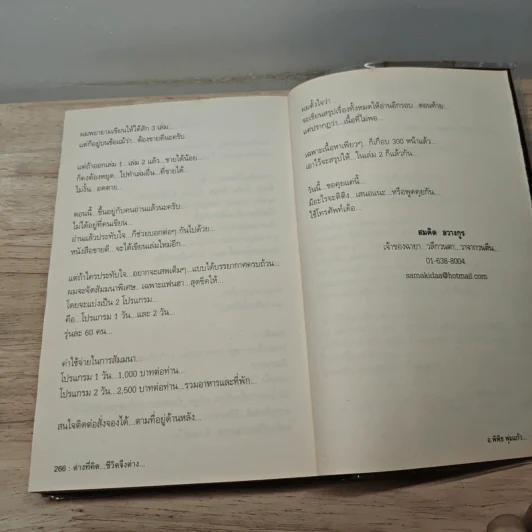 ผมพยายามเขียนให้ได้สัก 3 เล่ม...
แต่ก็อยู่บนข้อแม้ว่า...ต้องขายดีนะครับ...
แต่ถ้าออกเล่ม 1...เล่ม 2 แล้ว...ขายได้น้อย...
ก็คงต้องหยุด...ไปทำเล่มอื่น...ที่ขายได้...
ไม่งั้น...อดตาย...
ตอนนี้...ขึ้นอยู่กับคนอ่านแล้วนะครับ...
ไม่ได้อยู่ที่คนเขียน...
อ่านแล้วประทับใจ...ก็ช่วยบอกต่อๆ กันไปด้วย...
หนังสือขายดี...จะได้เขียนเล่มใหม่อีก...
แต่ถ้าใครประทับใจ...อยากจะเสพเต็มๆ...แบบได้บรรยากาศครบถ้วน...
ผมจะจัดสัมมนาพิเศษ...เฉพาะแฟนฮา...สุดขีดให้...
โดยจะแบ่งเป็น 2 โปรแกรม...
คือ...โปรแกรม 1 วัน...และ 2 วัน...
รุ่นละ 60 คน...
ค่าใช้จ่ายในการสัมมนา...
โปรแกรม 1 วัน...1,000 บาทต่อท่าน...
โปรแกรม 2 วัน...2,500 บาทต่อท่าน...รวมอาหารและที่พัก...
สนใจติดต่อสั่งจองได้...ตามที่อยู่ด้านหลัง...
266 : ต่างที่คิด...ชีวิตจึงต่าง...
ผมตั้งใจว่า...
จะเขียนสรุปเรื่องทั้งหมดให้อ่านอีกรอบ...ตอนท้าย...
แต่ปรากฏว่า...เนื้อที่ไม่พอ...
เฉพาะเนื้อหาเพียวๆ...ก็เกือบ 300 หน้าแล้ว...
เอาไว้จะสรุปให้...ในเล่ม 2 ก็แล้วกัน...
วันนี้...ขอคุยแค่นี้...
มีอะไรจะติติง...เสนอแนะ...หรือพูดคุยกัน...
ใช้โทรศัพท์เด้อ...
สมคิด ลวางกูร
เจ้าของฉายา...วลีกวนตา...วาจากวนตีน...
01-638-8004
samakidaa@hotmail.com
อ.พิศิธ พุ่มแก้ว...